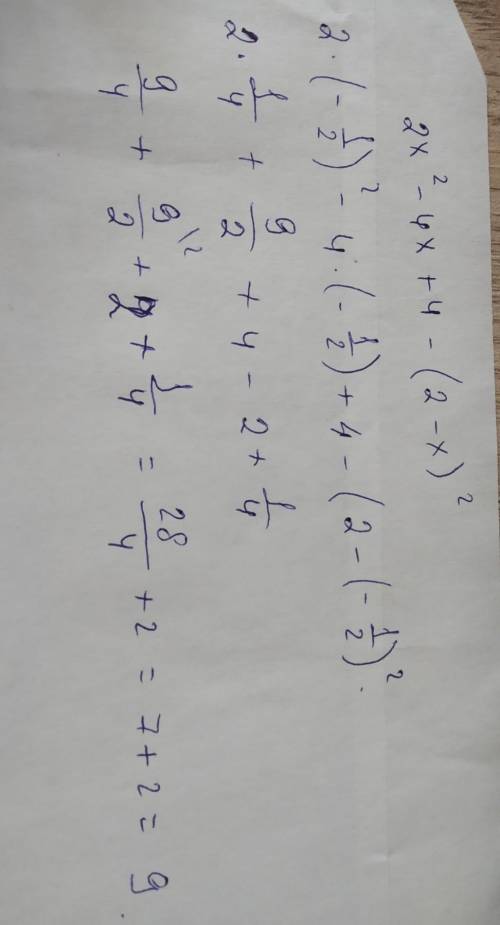 2x² - 4x + 4 - (2 - x)²
2 · (-1/2)² - 4 · (-1/2) + 4 - (2 - (-1/2)².
2 · 1/4 + 9/2 + 4 - 2 + 1/4
9/4 + 9/2 \2 + 2 + 1/4 = 28/4 + 2 = 7 + 2 = 9.